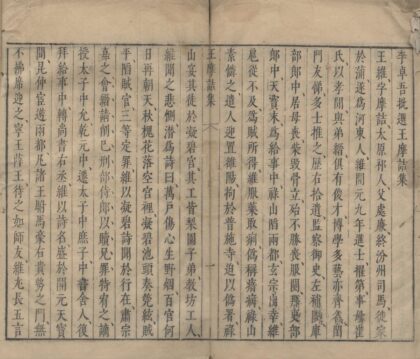 李卓吾批選王摩詰集
王維字摩詰太原祁人父處廉終汾州司馬徙家
於蒲遂為河東人維開元九年進士擢第事母崔
氏以孝聞與弟縉俱有俊才博學多藝亦齊名閨
門友悌多士推之歷右拾遺監察御史左補闕庫
部郎中居母喪柴毀骨立殆不勝喪服闋拜吏部
郎中天寶末為給事中祿山陷兩都玄宗出幸維
扈從不及為賊所得維服藥取痢偽稱瘖病祿山
素憐之遣人迎置雒陽拘於普施寺迫以偽署祿
王摩詰集 一
山宴其徒於凝碧宮其工皆梨園子弟教坊工人
維聞之悲惻潛為詩曰萬戶傷心生野烟百官何
日再朝天秋槐花落空宮裡凝碧池頭奏筦絃賊
平陷賊官三等定罪維以凝碧詩聞於行在肅宗
嘉之會縉請削己刑部侍郎以贖兄罪特宥之謫
授太子中允乾元中遷太子中庶子中書舍人復
拜給事中轉尚書右丞維以詩名盛於開元天寶
間昆仲宦遊兩都凡諸王駙馬豪右貴勢之門無
不拂席迎之寧王薛王待之如師友維尤長五言